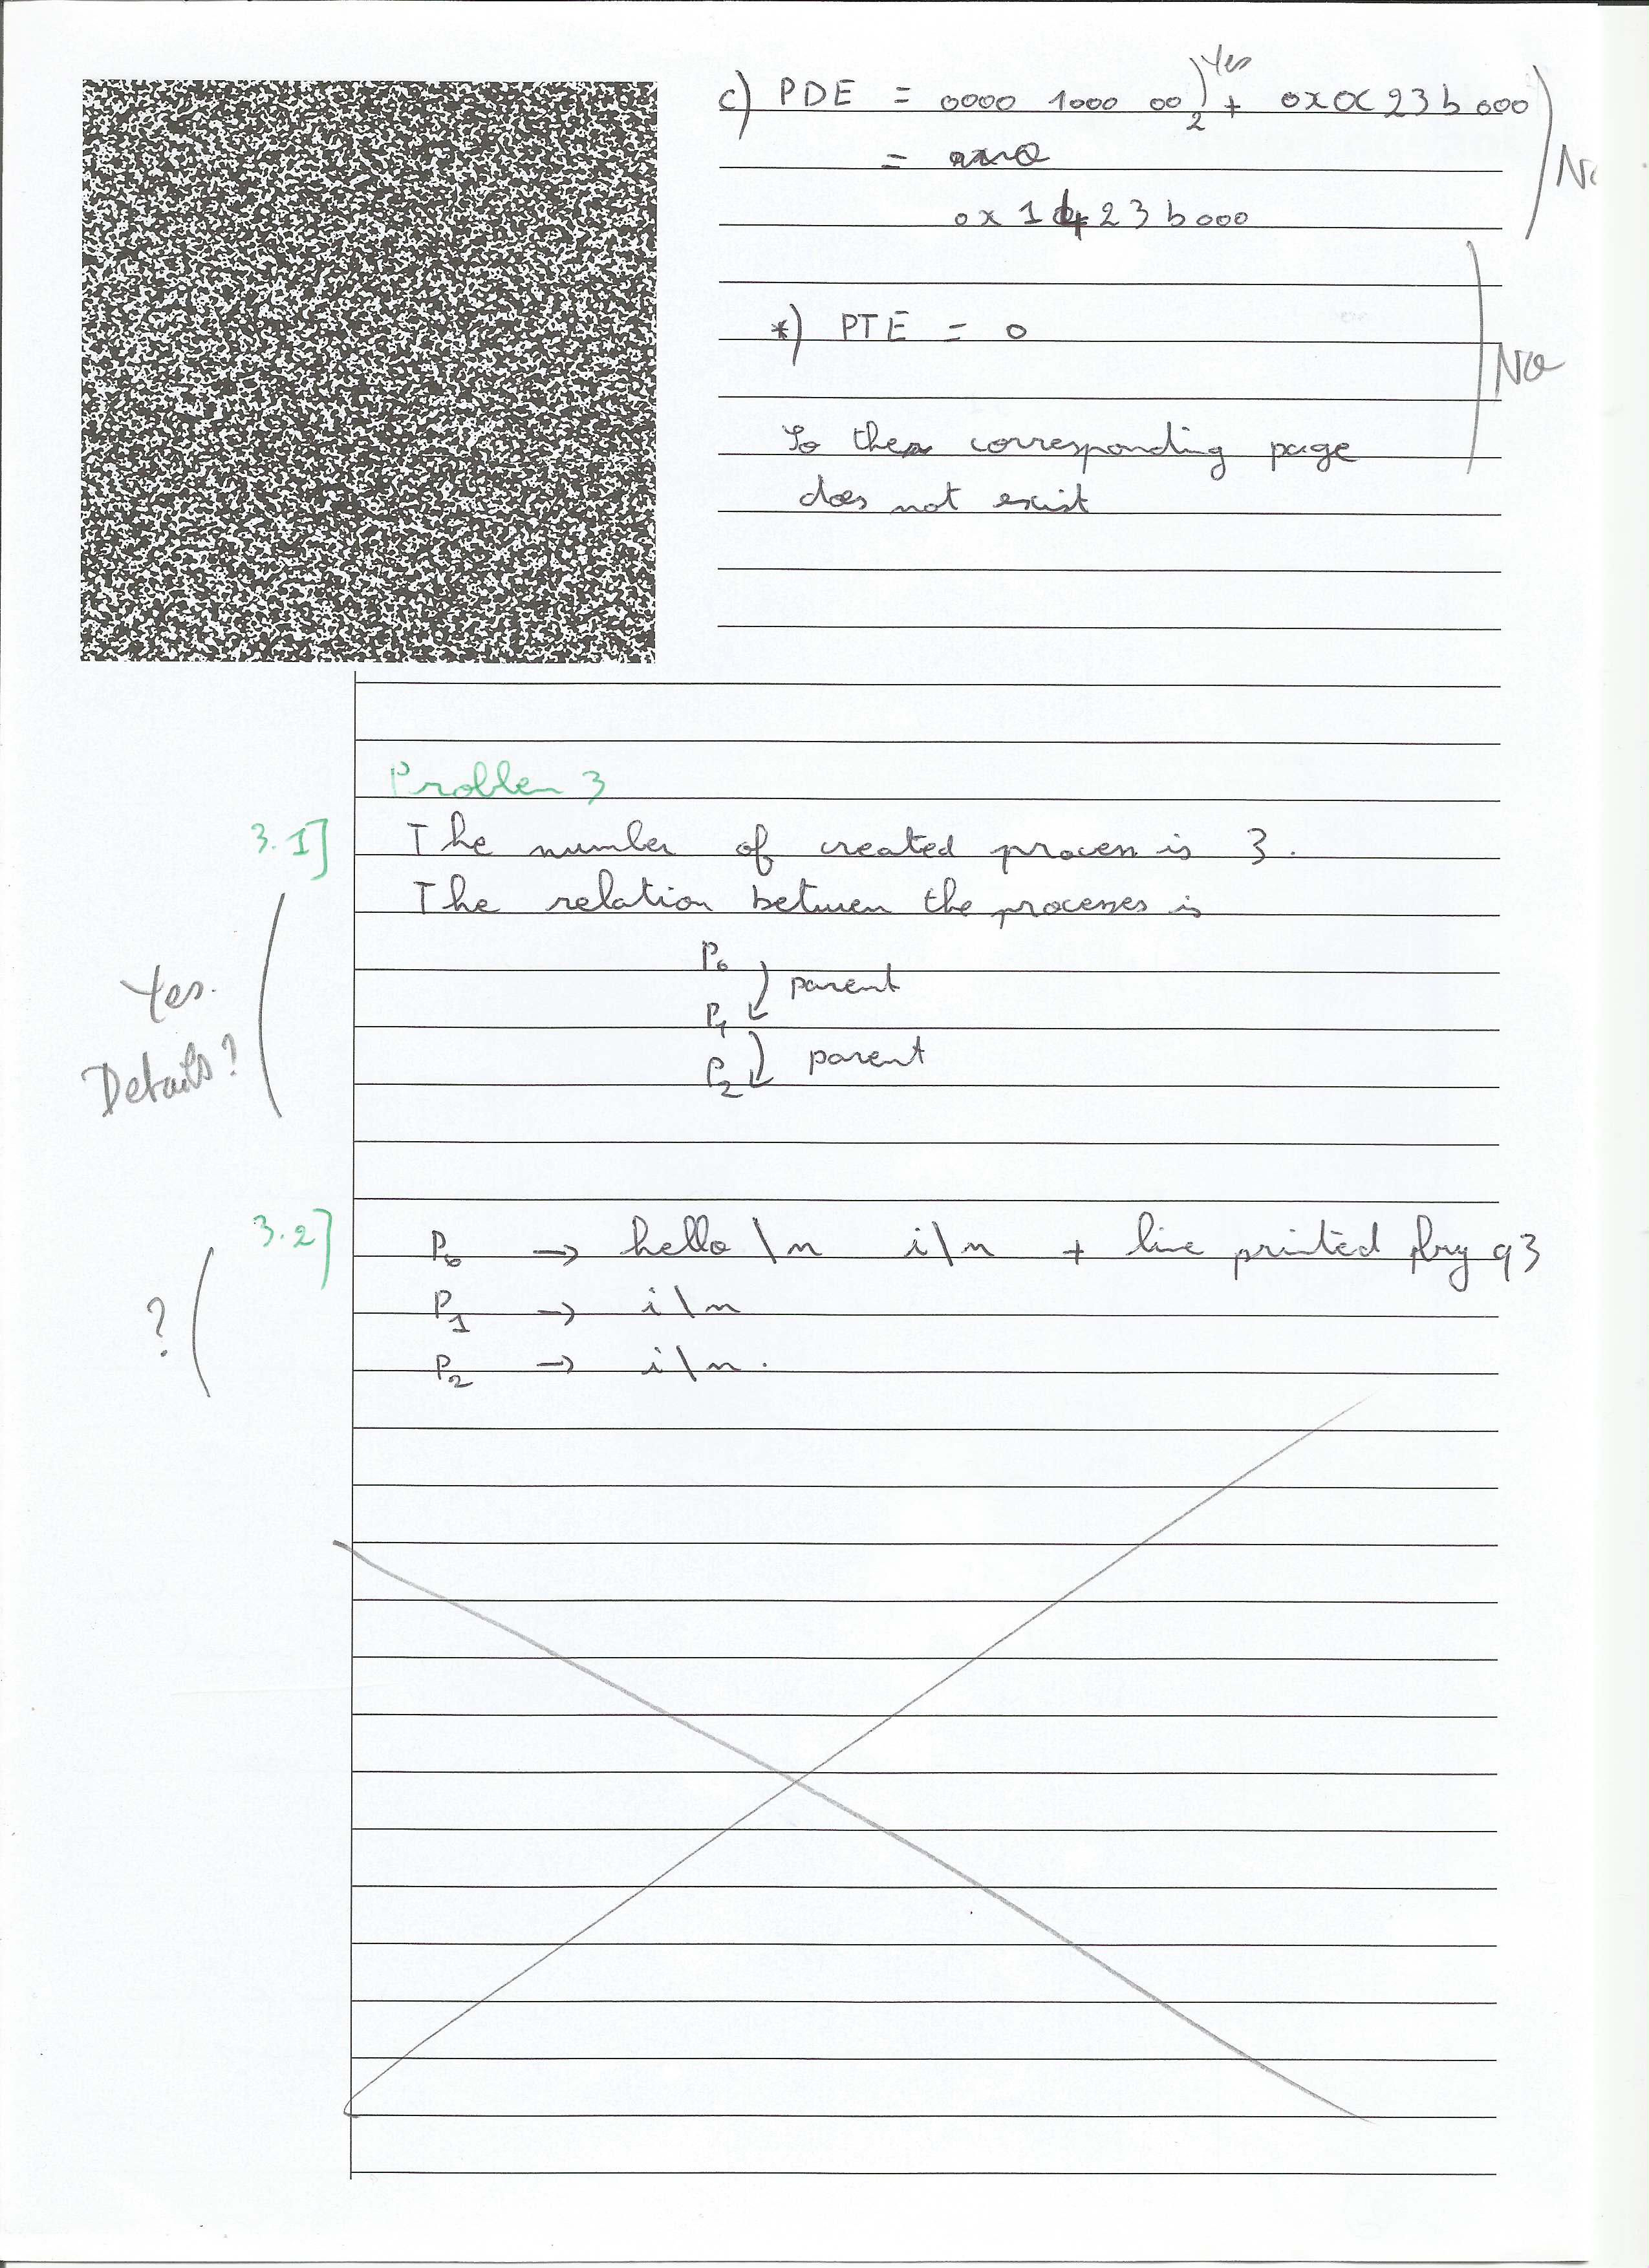 c) PDE = 0000 1000 00)₂ + 0x0C23b000
Yes
=
0x1423b000
No
*) PTE = 0
No
So the corresponding page
does not exist
Problem 3
3.1] The number of created process is 3.
The relation between the processes is
P0
parent
P1
parent
P2
Yes.
Details?
3.2] P0 → hello\n i\n + line printed by q3
P1 → i\n
P2 → i\n.
?